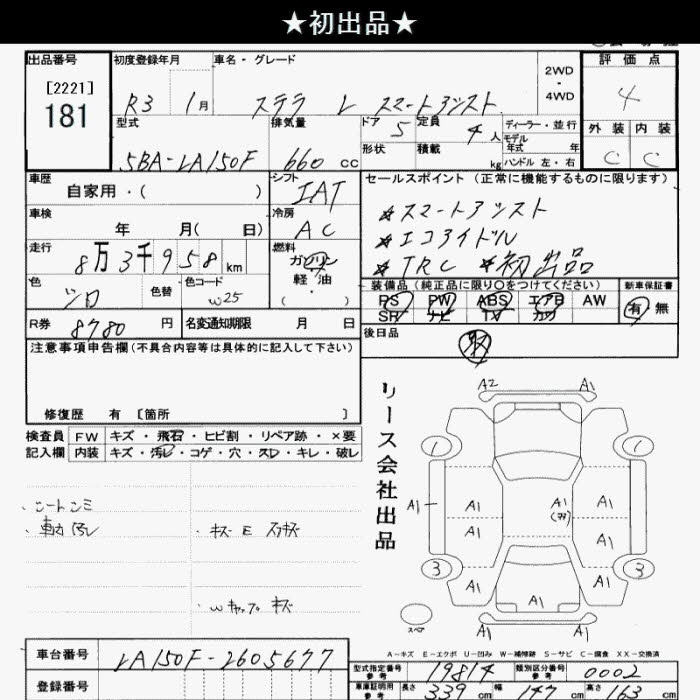 ★初出品★
出品番号 初度登録年月 車名・グレード 2WD ・ 4WD 評価点
[2221]
181
R3 1月 ステラ L スマートアシスト 4
型式 排気量 ドア 5 定員 4人 ディーラー・並行
モデル年式 年
外装 内装
5BA-LA150F 660cc 形状 積載 kg ハンドル 左・右 C C
車歴 自家用・( ) シフト IAT セールスポイント(正常に機能するものに限ります)
車検 年 月( 日) 冷房 AC
★スマートアシスト
★エコアイドル
★TRC ★初出品
走行 8万3千958km 燃料 ガソリン 軽油 ・( )
色 シロ 色替 色コード W25
装備品(純正品に限り○をつけてください) 新車保証書
PS PW ABS エアB AW 有 無
SR ナビ TV カワ
R券 8780円 名変通知期限 月 日
後日品
注意事項申告欄(不具合内容等は具体的に記入して下さい)
修復歴 有 [箇所 ]
検査員 FW キズ・飛石・ヒビ割・リペア跡・×要
記入欄 内装 キズ・汚レ・コゲ・穴・スレ・キレ・破レ
リース会社出品
A2 A1
1 1
A1 A1 A1 A1
A1 A1
3 3
A1 A1 A1
A1 A1
スペア
・シートシミ
A-キズ E-エクボ U-凹み W-補修跡 S-サビ C-腐食 XX-交換済
車台番号 LA150F-2605677
型式指定番号 参考 19814 類別区分番号 参考 0002
登録番号
車庫証明用 参考 長さ 339cm 幅 147cm 高さ 163cm